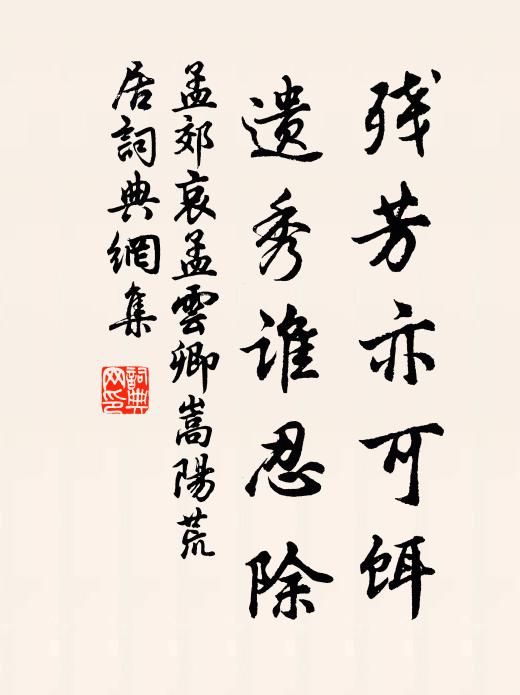 残芳亦可餌
遗秀谁忍除
孟郊哀孟雲卿嵩陽荒
居詞典網集
詞典网印